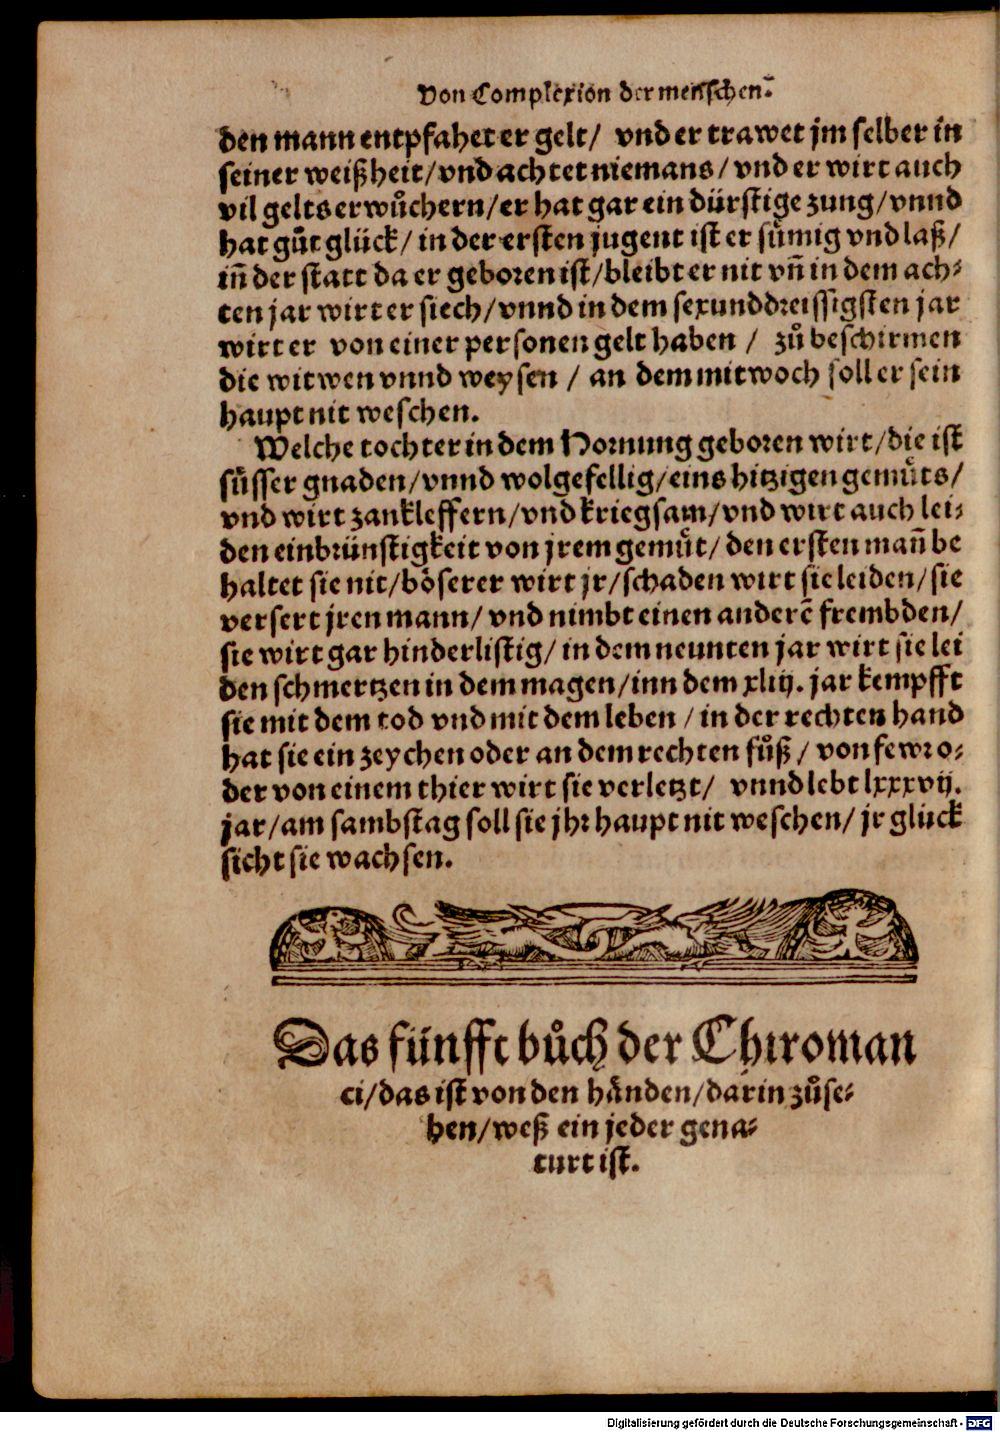 Von Complexion der menschen.
den mann entpfahet er gelt/ vnd er trawet jm selber in
seiner weißheit/vnd achtet niemans/vnd er wirt auch
vil gelts erwůchern/er hat gar ein dürstige zung/vnnd
hat gůt glück/in der ersten jugent ist er sümig vnd laß/
iñ der statt da er geboren ist/bleibt er nit vñ in dem ach⸗
ten jar wirt er siech/vnnd in dem sexunddreissigsten jar
wirt er von einer personen gelt haben / zů beschirmen
die witwen vnnd weysen / an dem mitwoch soll er sein
haupt nit weschen.
Welche tochter in dem Hornung geboren wirt/die ist
sůsser gnaden/vnnd wolgefellig/eins hitzigen gemůts/
vnd wirt zankleffern/vnd kriegsam/vnd wirt auch lei⸗
den einbrünstigkeit von jrem gemůt/den ersten mañ be
haltet sie nit/böserer wirt jr/schaden wirt sie leiden/sie
versert jren mann/ vnd nimbt einen anderẽ frembden/
sie wirt gar hinderlistig/in dem neunten jar wirt sie lei
den schmertzen in dem magen/inn dem xliij. jar kempfft
sie mit dem tod vnd mit dem leben /in der rechten hand
hat sie ein zeychen oder an dem rechten fůß / von fewr o⸗
der von einem thier wirt sie verletzt/ vnnd lebt lxxxvij.
jar/am sambstag soll sie jhr haupt nit weschen/ jr glück
sicht sie wachsen.
Das fünfft bůch der Chiroman
ci/das ist von den händen/darin zůse⸗
hen/weß ein jeder gena⸗
turt ist.
Digitalisierung gefördert durch die Deutsche Forschungsgemeinschaft - DFG